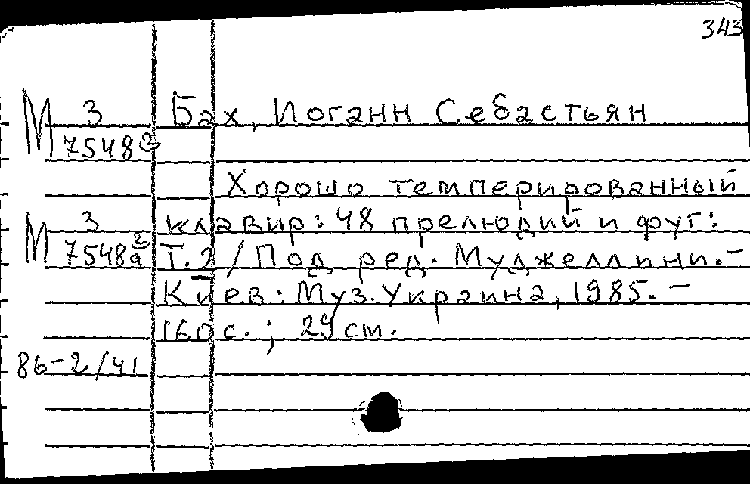 343
М 3 Бах, Иоганн Себастьян
7548
Хорошо темперированный
М 3 клавир: 48 прелюдий и фуг:
7548а2 Т. 2 / Под ред. Муджеллини. –
Киев: Муз. Украина, 1985. –
160 с. ; 29 см.
86-2/41